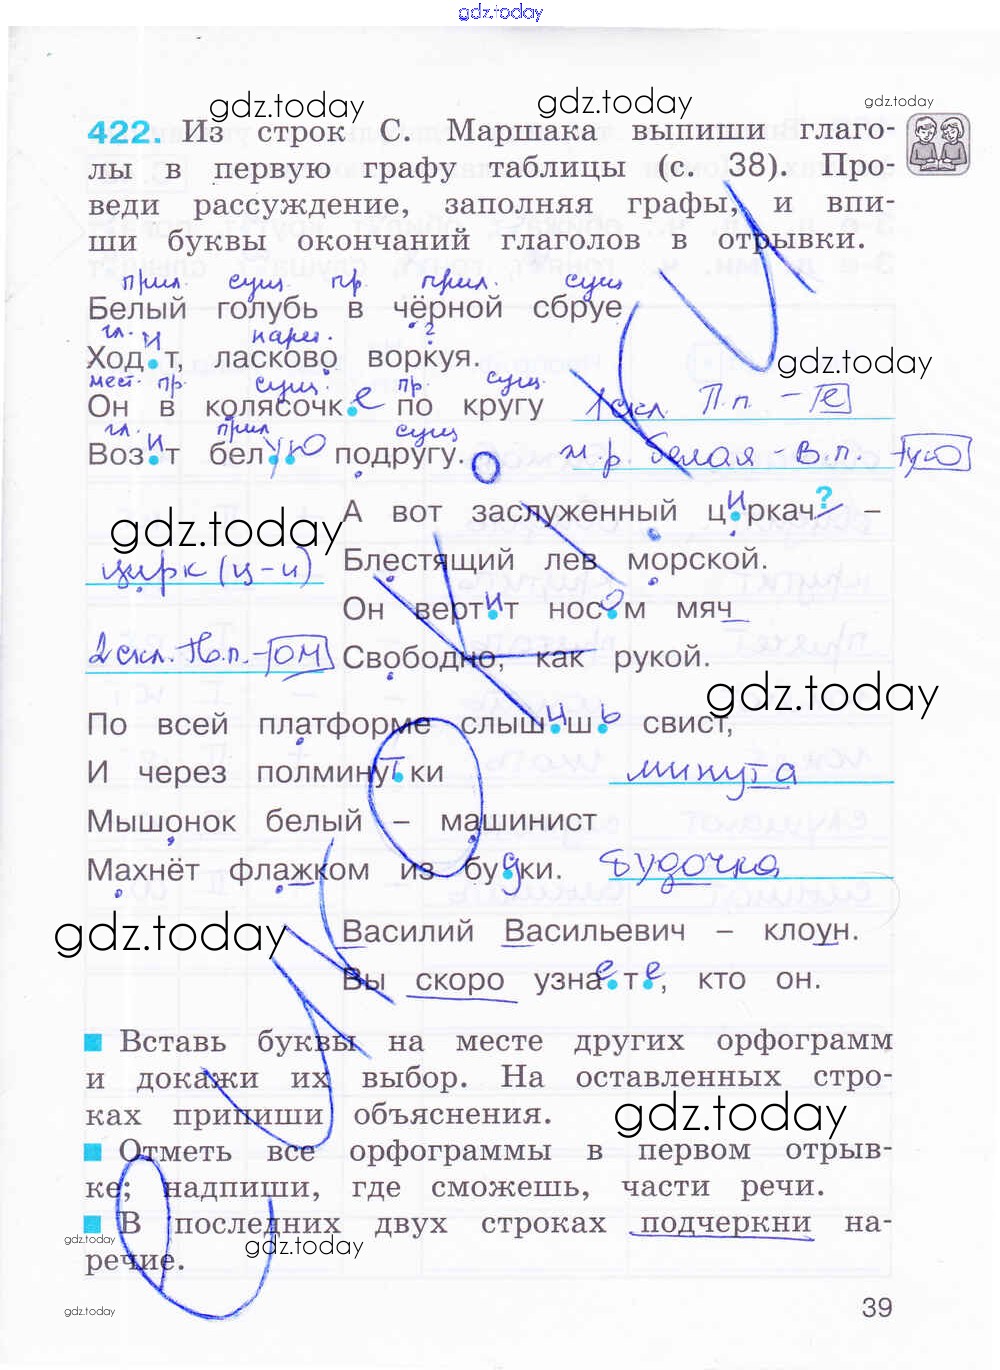 gdz.today
gdz.today gdz.today gdz.today
422. Из строк С. Маршака выпиши глаго-
лы в первую графу таблицы (с. 38). Про-
веди рассуждение, заполняя графы, и впи-
ши буквы окончаний глаголов в отрывки.
прил. сущ. пр. прил. сущ
Белый голубь в чёрной сбруе
гл. и нареч. ?
Ход.т, ласково воркуя.
gdz.today
мест. пр. сущ. пр. сущ.
Он в колясочк.е по кругу 1 скл. П.п. - е
гл. и прил ую сущ
Воз.т бел.. подругу. ж.р. белая - В.п. ую
А вот заслуженный ц.иркач ? –
gdz.today
Блестящий лев морской.
цирк (ц-и)
Он верт.ит нос.ом мяч
2 скл. Т.п. - ом Свободно, как рукой.
gdz.today
По всей платформе слыш.иш.ь свист,
И через полминутки минута
Мышонок белый – машинист
Махнёт флажком из будки. будочка
gdz.today
Василий Васильевич – клоун.
Вы скоро узна.ет.е, кто он.
Вставь буквы на месте других орфограмм
и докажи их выбор. На оставленных стро-
ках припиши объяснения.
gdz.today
Отметь все орфограммы в первом отрыв-
ке; надпиши, где сможешь, части речи.
В последних двух строках подчеркни на-
gdz.today gdz.today
речие.
gdz.today
39